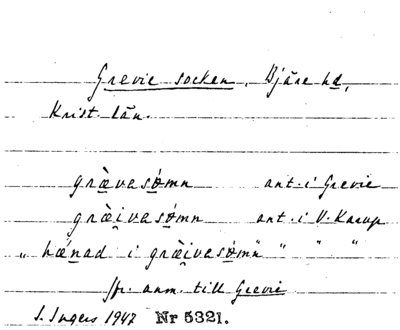 Grevie socken, Bjäre hd,
Krist. län.
græ̀vasǿmn ant. i Grevie
græ̀i̯vasǿmn ant. i V. Karup
„ hǽnad i græ̀i̯vasǿmn " " " "
Jfr. anm. till Grevie
S. Ingers 1947 Nr 5321.